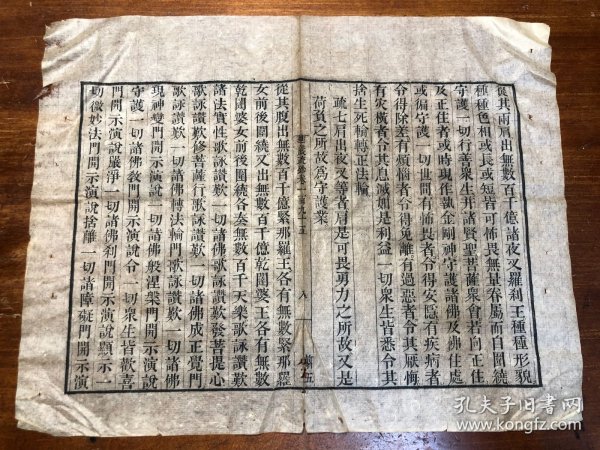 從其兩肩出無數百千億諸夜叉羅刹王種種形貌
種種色相或長或短皆可怖畏無量眷屬而自圍繞
守護一切行善衆生并諸賢聖菩薩衆會若向正住
及正住者或時現作執金剛神守護諸佛及佛住處
或徧守護一切世間有怖畏者令得安隱有疾病者
令得除差有煩惱者令得免離有過惡者令其厭悔
有災橫者令其息滅如是利益一切衆生皆悉令其
捨生死輪轉正法輪
疏七肩出夜叉等者肩是可畏勇力之所故又是
荷負之所故為守護業
八
從其腹出無數百千億緊那羅王各有無數緊那羅
女前後圍繞又出無數百千億乾闥婆王各有無數
乾闥婆女前後圍繞各奏無數百千天樂歌詠讚歎
諸法實性歌詠讚歎一切諸佛歌詠讚歎發菩提心
歌詠讚歎修菩薩行歌詠讚歎一切諸佛成正覺門
歌詠讚歎一切諸佛轉法輪門歌詠讚歎一切諸佛
現神變門開示演說一切諸佛般涅槃門開示演說
守護一切諸佛敎門開示演說令一切衆生皆歡喜
門開示演說嚴淨一切諸佛刹門開示演說顯示一
切微妙法門開示演說捨離一切諸障礙門開示演
孔夫子旧书网
www.kongfz.com